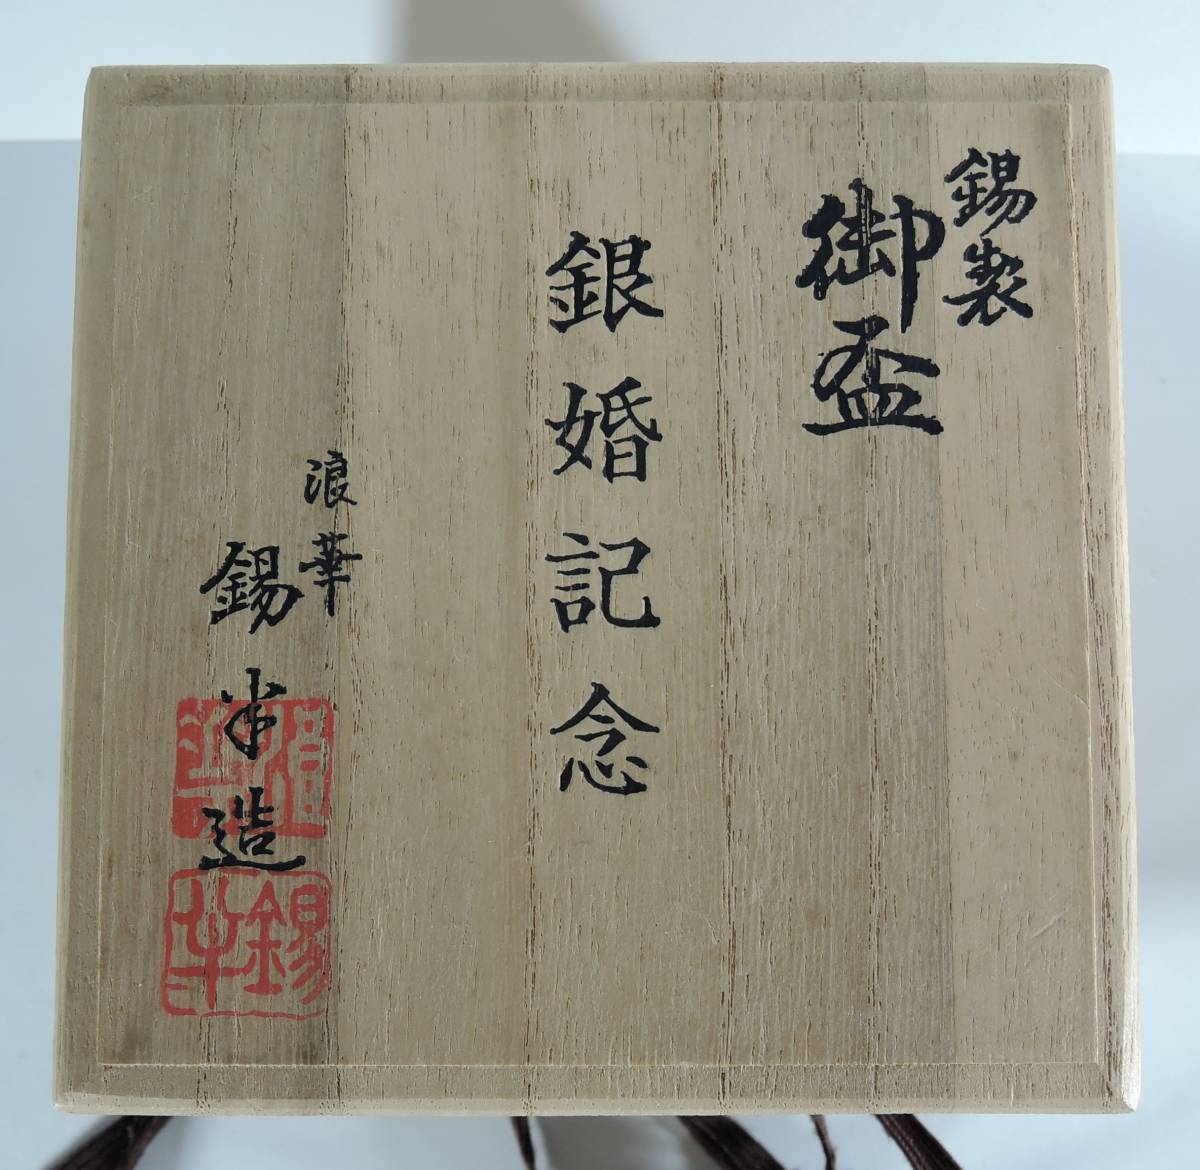 錫製
御盃
銀婚記念
浪華
錫半造
錫半